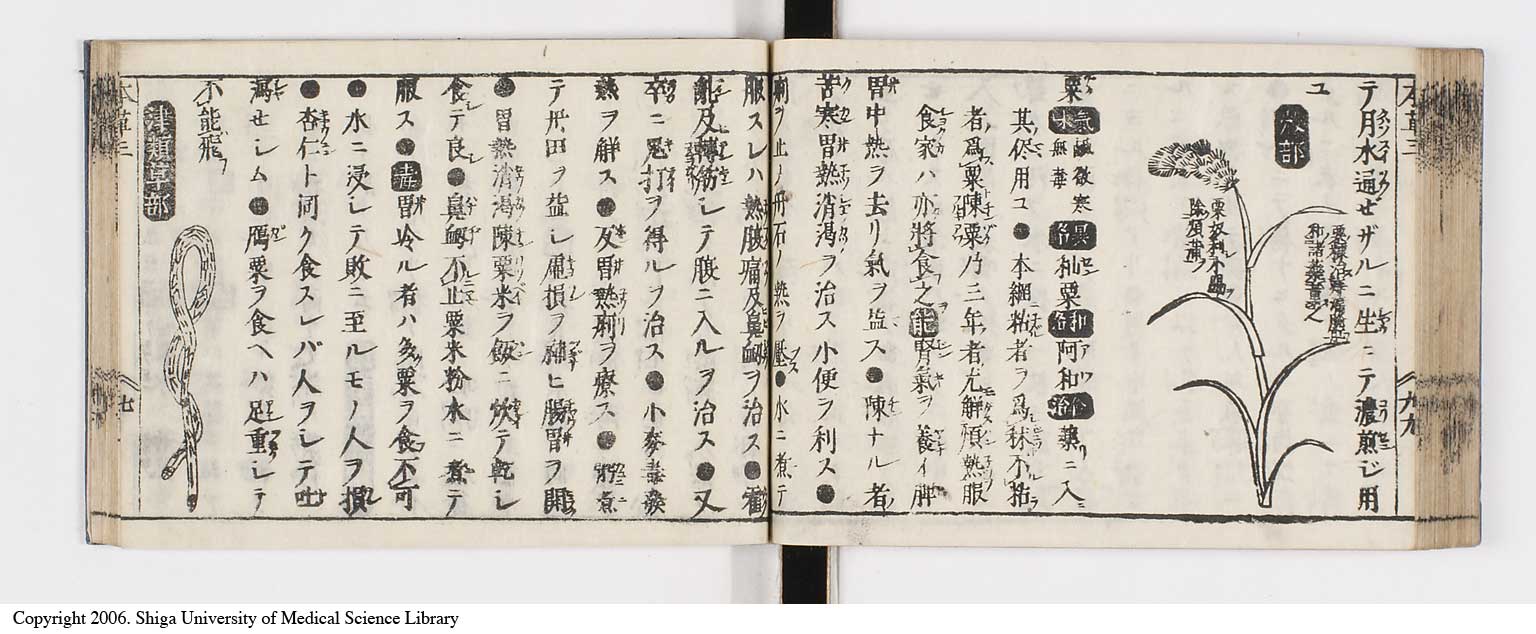 テ月水通ゼザルニ生ニテ濃煎ジ用
ユ
穀部
和諸藥煮之
栗奴利小腸
除煩滿
粟 氣味 鹹微寒無毒 異名 秈粟 和名 阿和 合治 藥ニ入
其侭用ユ●本綱粘者ヲ為秫不粘
者爲粟陳粟乃三年者尤解煩熱服
食家ハ亦將食之 能 腎氣ヲ養イ脾
胃中熱ヲ去リ氣ヲ益ス●陳ナル者
苦寒胃熱消渇ヲ治ス小便ヲ利ス●
痢ヲ止メ丹石ノ熱ヲ壓ス●水ニ煮テ
服スレハ熱腹痛及鼻衂ヲ治ス●霍
亂及轉筋シテ腹ニ入ルヲ治ス●又
卒ニ鬼打ヲ得ルヲ治ス●小麥毒發
熱ヲ解ス●反胃熱痢ヲ療ス●粥煮
テ丹田ヲ益シ虚損ヲ補ヒ腸胃ヲ開
●胃熱消渇陳粟米ヲ飯ニ炊テ乾シ
食テ良●鼻衂不止粟米粉水ニ煮テ
服ス● 毒 胃冷ル者ハ多粟ヲ食不可
●水ニ浸シテ敗ニ至ルモノ人ヲ損
●杏仁ト同ク食スレバ人ヲシテ吐
瀉セシム●鴈粟ヲ食ヘハ足重シテ
不能飛
草部
本草三
七